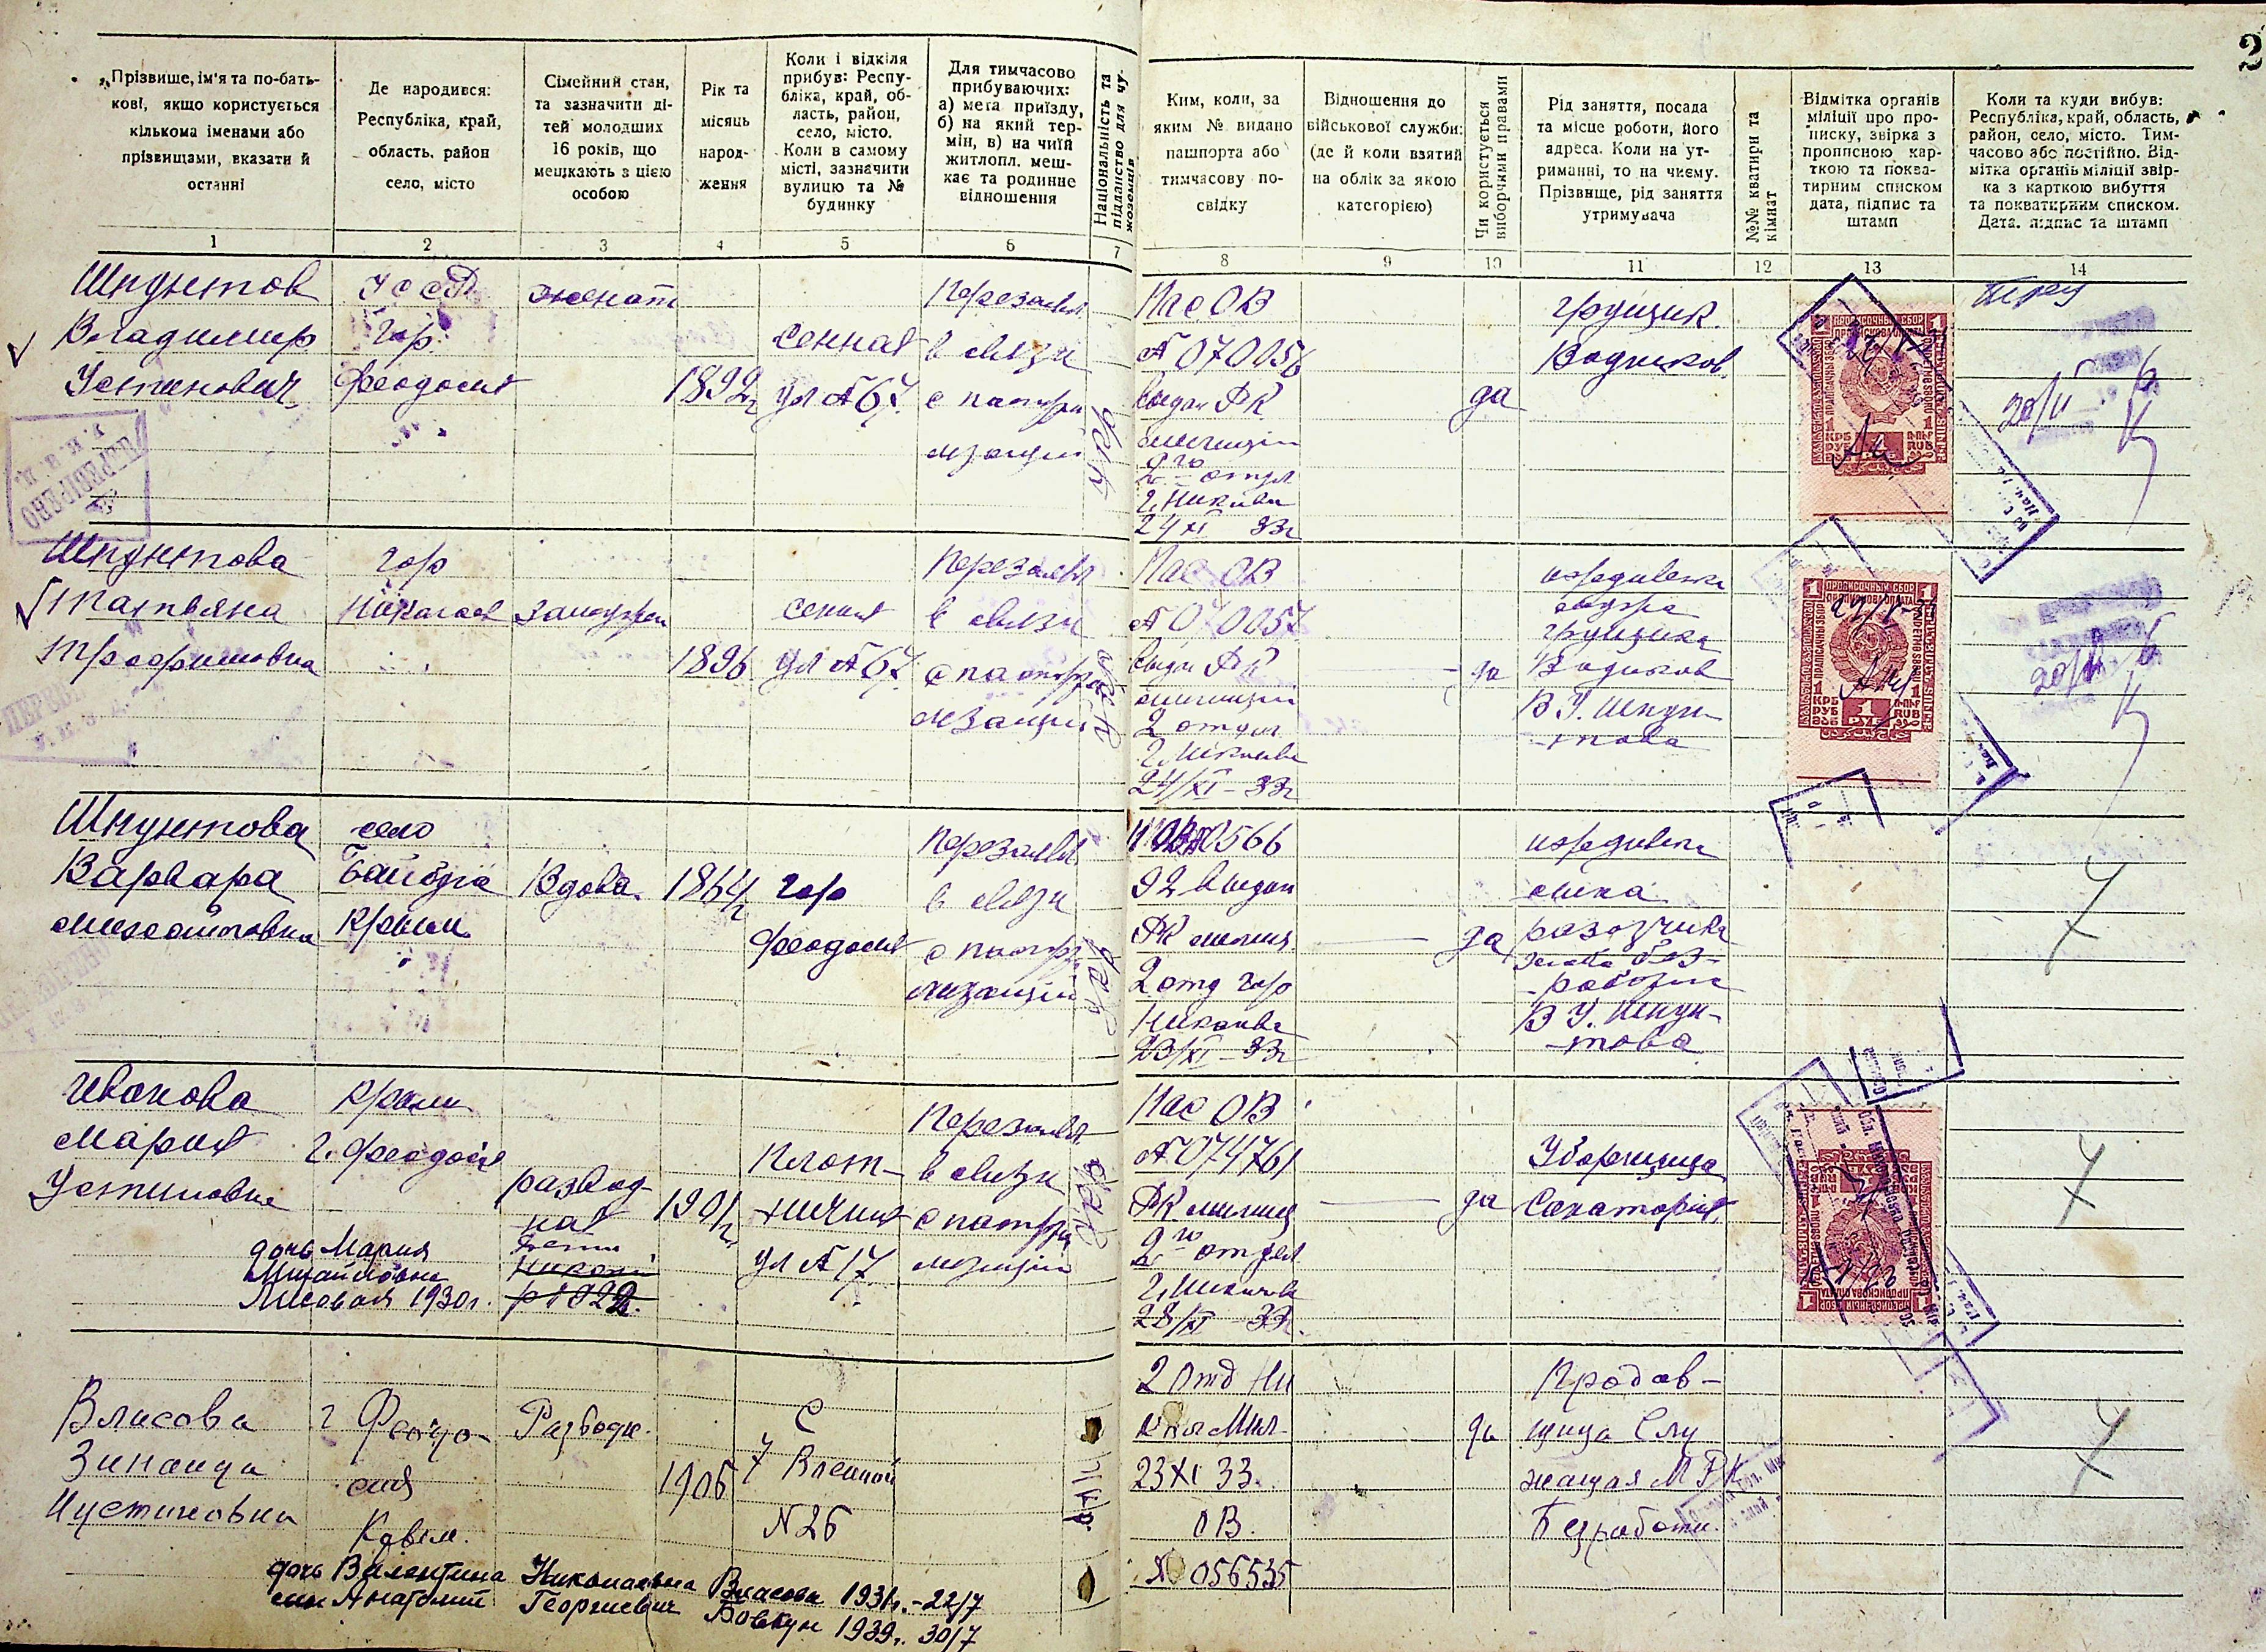 2
Прізвище, ім'я та по-бать-
кові, якщо користується
кількома іменами або
прізвищами, вказати й
останні
1
Де народився:
Республіка, край,
область, район
село, місто
2
Сімейний стан,
та зазначити ді-
тей молодших
16 років, що
мешкають з цією
особою
3
Рік та
місяць
народ-
ження
4
Коли і відкіля
прибув: Респу-
бліка, край, об-
ласть, район,
село, місто.
Коли в самому
місті, зазначити
вулицю та №
будинку
5
Для тимчасово
прибуваючих:
а) мета приїзду,
б) на який тер-
мін, в) на чиїй
житлопл. меш-
кає та родинне
відношення
6
Національність та
підданство для чу-
жоземців
7
Ким, коли, за
яким № видано
пашпорта або
тимчасову по-
свідку
8
Відношення до
військової служби:
(де й коли взятий
на облік за якою
категорією)
9
Чи користується
виборчими правами
10
Рід заняття, посада
та місце роботи, його
адреса. Коли на ут-
риманні, то на чиєму.
Прізвище, рід заняття
утримувача
11
№№ кватири та
кімнат
12
Відмітка органів
міліції про про-
писку, звірка з
прописною кар-
ткою та поква-
тирним списком
дата, підпис та
штамп
13
Коли та куди вибув:
Республіка, край, область,
район, село, місто. Тим-
часово або постійно. Від-
мітка органів міліції звір-
ка з карткою вибуття
та покватирним списком.
Дата, підпис та штамп
14
Шпунтов
Владимир
Устинович
гор.
Феодосия
женат
1892г
Сенная
ул № 67.
в связи
с паспор
укр
Пас ОВ
№ 070056
выдан РК
милиции
2го отдел
г. Николаев
24 XI 33г
да
грузчик
Водников
20/II
ПРОПИСОЧНЫЙ СБОР
1 РУБ
Шпунтова
Татьяна
Трофимовна
гор
Николаев
замужем
1896
ул № 67
в связи
с паспор
укр
Пас ОВ
№ 070057
милиции
2 отдел
г. Николаев
24/XI-33г
да
иждивенка
грузчика
В У. Шпун-
това
ПРОПИСОЧНЫЙ СБОР
1 РУБ
Шпунтова
Варвара
Михайловна
село
крым
Вдова
1864г
гор
Феодосия
в связи
с паспор
укр
0566
92 выдан
РК милиц
2 отд гор
Николаев
23/XI-33г
да
иждивенка
сына
грузчика
В У. Шпун-
това
Иванова
Мария
Устиновна
дочь Мария
Михайловна
Лисовая 1930г.
крым
г. Феодосия
развед-
ная
дети
1901г
Плот-
ничная
ул № 17
в связи
с паспор
укр
Пас ОВ
№ 074761
РК милиц
2го отдел
г. Николаев
28/XI 33г.
да
Уборщица
Санатория
ПРОПИСОЧНЫЙ СБОР
Власова
Зинаида
Иустиновна
г Феодо-
сия
Крым.
Разведен.
1906
С
7 Военной
N 26
2 Отд Ни
Мил
23 XI 33.
ОВ.
№ 056535
да
Продав-
щица Слу
жащая МРК
Безработн.
дочь Валентина Николаевна Власова 1931г.-22/7
сын Анатолий Георгиевич Бовкун 1939г. 30/7